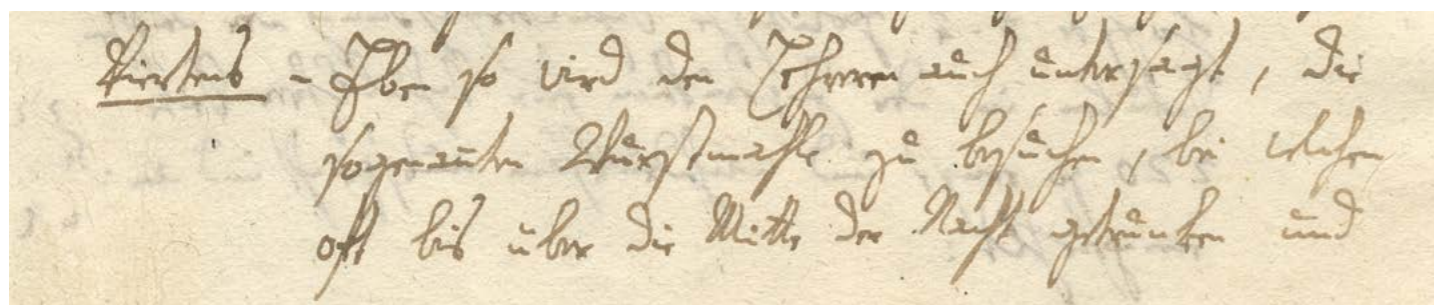 Viertens - Eben so wird den Lehrern auch untersagt, die
sogenanten Wurstmahle zu besuchen, bei welchen
oft bis über die Mitte der Nacht getrunken und